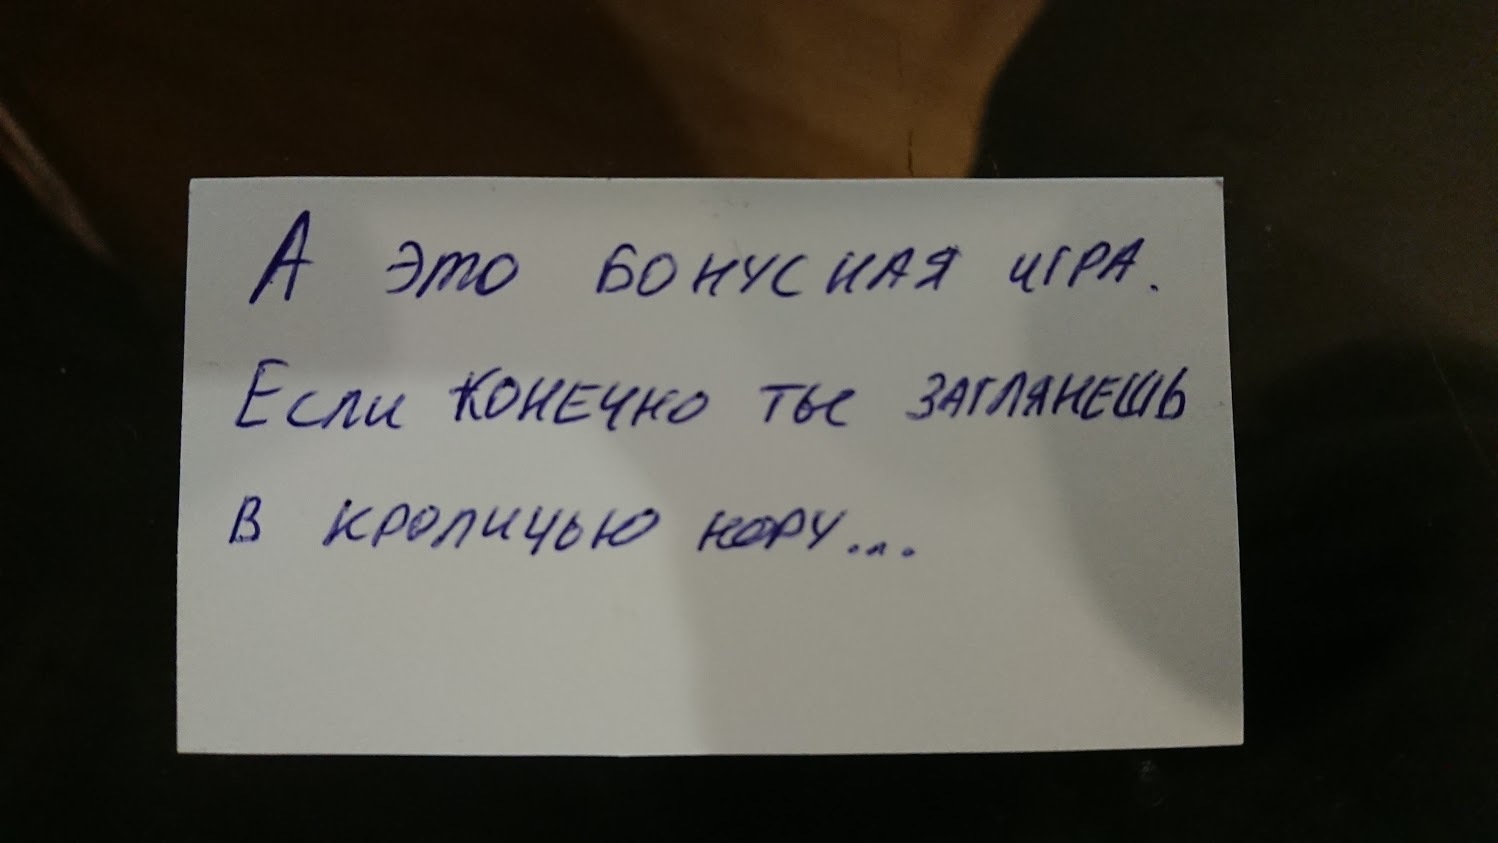 А это бонусная игра.
Если конечно ты заглянешь
в кроличью нору...